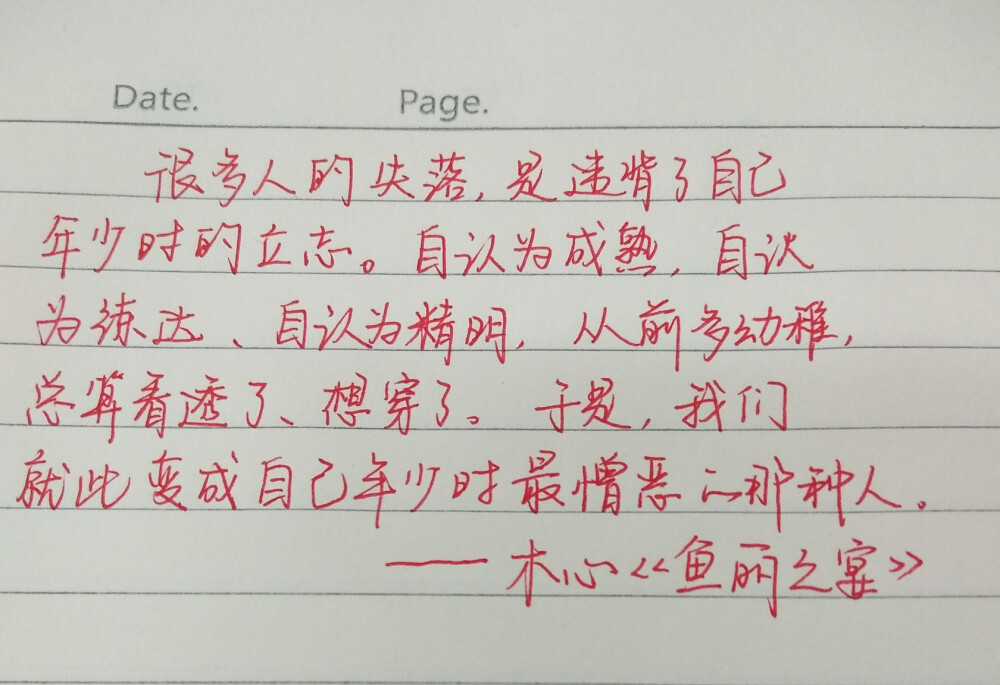 Date. Page.
很多人的失落,是违背了自己
年少时的立志。自认为成熟,自认
为练达、自认为精明,从前多幼稚,
总算看透了、想穿了。于是,我们
就此变成自己年少时最憎恶的那种人。
——木心《鱼丽之宴》